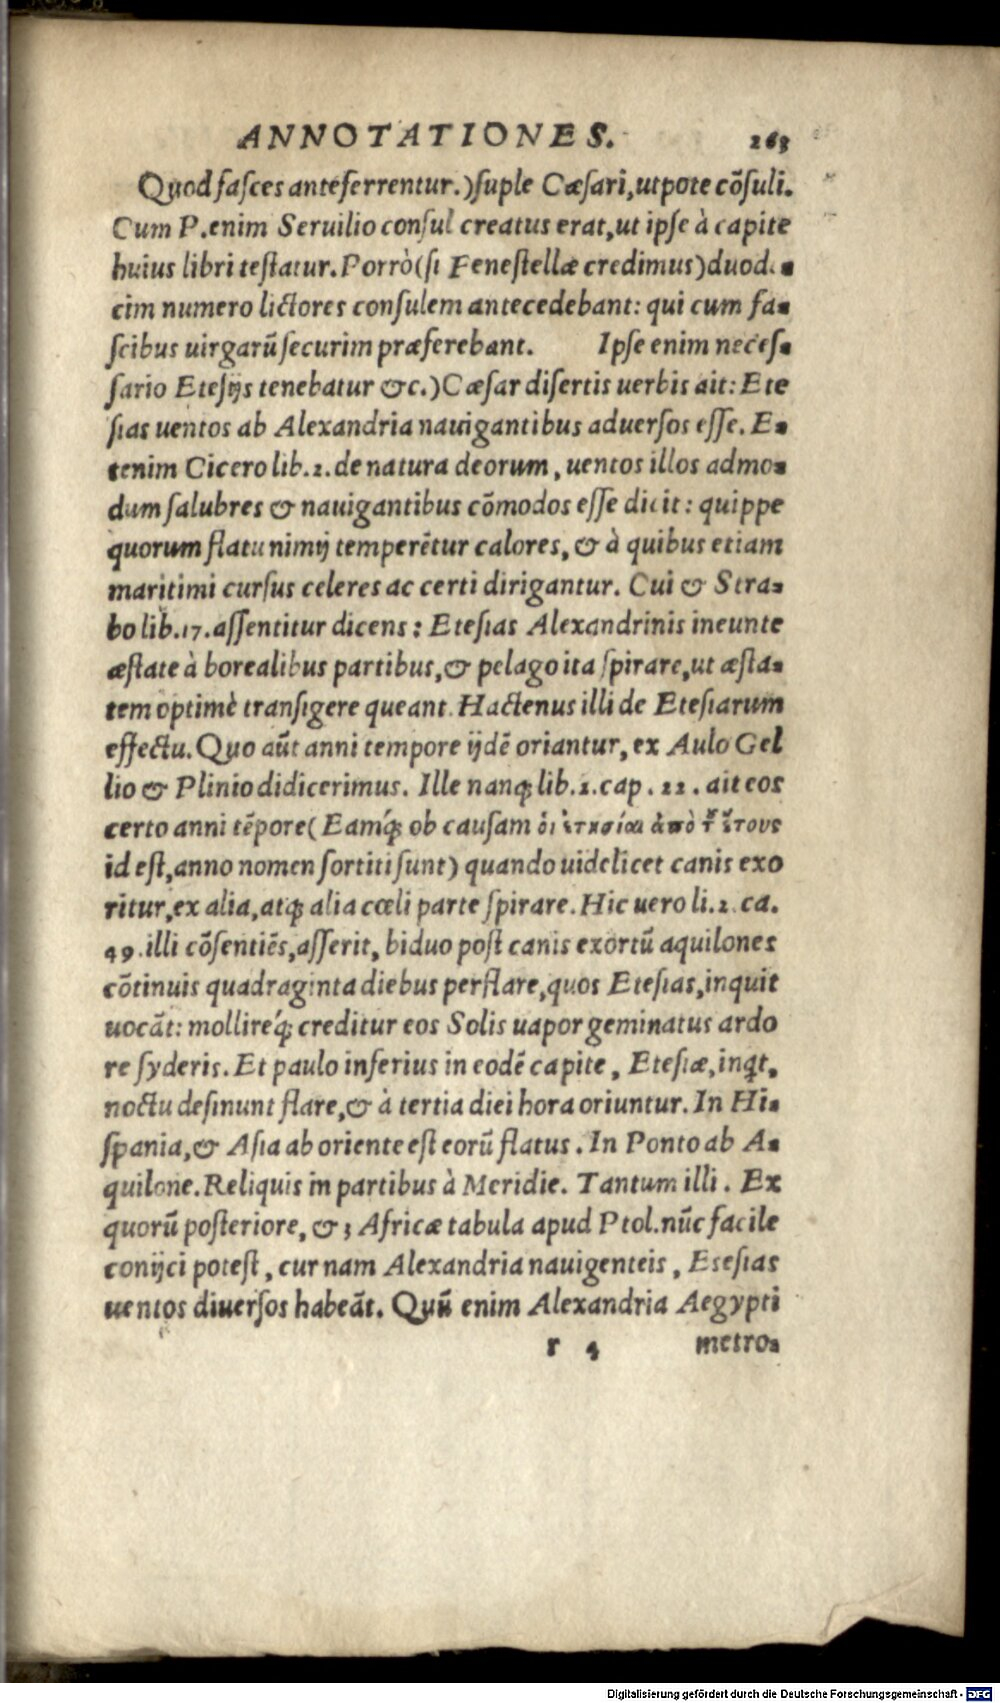 ANNOTATIONES. 263
Quod fasces anteferrentur.) suple Cæsari, utpote cõsuli.
Cum P. enim Seruilio consul creatus erat, ut ipse à capite
huius libri testatur. Porrò (si Fenestellæ credimus) duode-
cim numero lictores consulem antecedebant: qui cum fa-
scibus uirgarũ securim præferebant. Ipse enim neces-
sario Etesijs tenebatur &c.) Cæsar disertis uerbis ait: Ete
sias uentos ab Alexandria nauigantibus aduersos esse. E-
tenim Cicero lib. 2. de natura deorum, uentos illos admo-
dum salubres & nauigantibus cõmodos esse dicit: quippe
quorum flatu nimij temperẽtur calores, & à quibus etiam
maritimi cursus celeres ac certi dirigantur. Cui & Stra-
bo lib. 17. assentitur dicens: Etesias Alexandrinis ineunte
æstate à borealibus partibus, & pelago ita spirare, ut æsta-
tem optimè transigere queant. Hactenus illi de Etesiarum
effectu. Quo aũt anni tempore ijdẽ oriantur, ex Aulo Gel
lio & Plinio didicerimus. Ille nanq; lib. 2. cap. 22. ait eos
certo anni tẽpore (Eamq́; ob causam ὁι ἐτησίαι ἀπὸ τ̃ ἔτους
id est, anno nomen sortiti sunt) quando uidelicet canis exo
ritur, ex alia, atq; alia cœli parte spirare. Hic uero li. 2. ca.
49. illi cõsentiẽs, asserit, biduo post canis exortũ aquilones
cõtinuis quadraginta diebus perflare, quos Etesias, inquit
uocãt: mollireq́; creditur eos Solis uapor geminatus ardo
re syderis. Et paulo inferius in eodẽ capite, Etesiæ, inqt,
noctu desinunt flare, & à tertia diei hora oriuntur. In Hi-
spania, & Asia ab oriente est eorũ flatus. In Ponto ab A-
quilone. Reliquis in partibus à Meridie. Tantum illi. Ex
quorũ posteriore, & 3 Africæ tabula apud Ptol. nũc facile
conijci potest, cur nam Alexandria nauigenteis, Etesias
uentos diuersos habeãt. Quũ enim Alexandria Aegypti
r 4 metro-
Digitalisierung gefördert durch die Deutsche Forschungsgemeinschaft - DFG